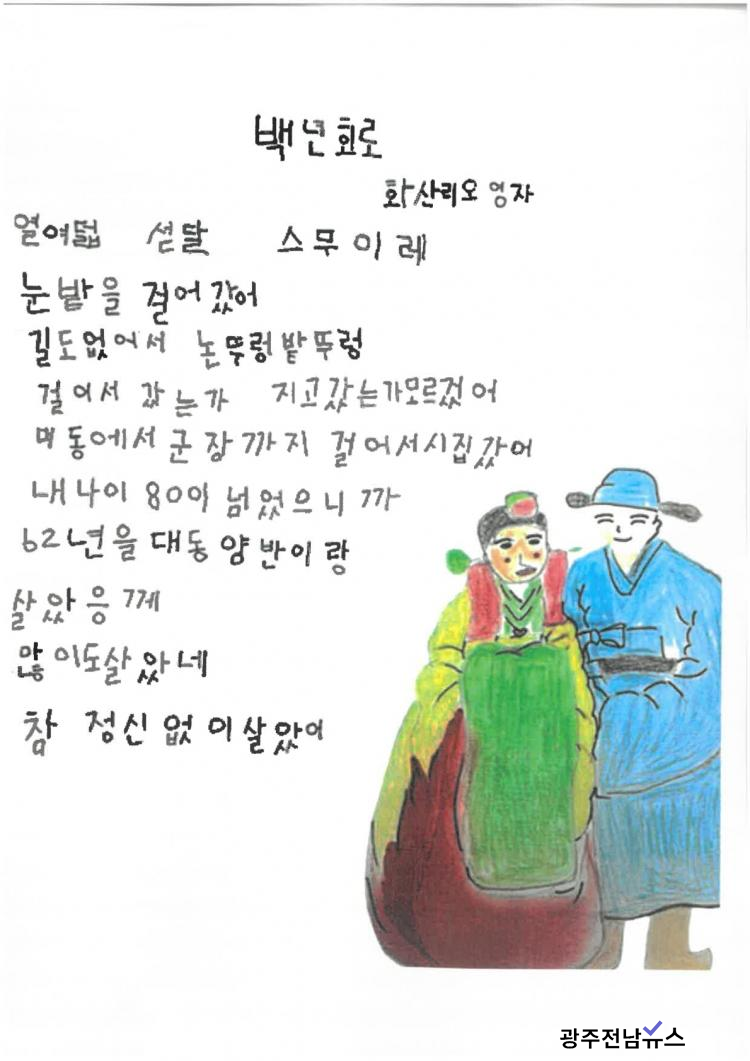 백년회로
화산리오영자
열여덟 섣달 스무이레
눈밭을 걸어갔어
길도없어서 논뚜렁밭뚜렁
걸어서 갔는가 지고갔는가모르겄어
며동에서군장까지 걸어서시집갔어
내나이 80이 넘었으니까
62년을대동양반이랑
살았응께
많이도살았네
참 정신없이살았어
광주전남뉴스